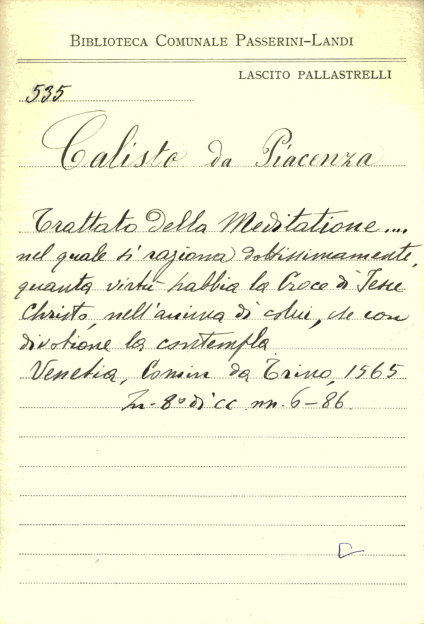 BIBLIOTECA COMUNALE PASSERINI-LANDI
LASCITO PALLASTRELLI
535
Calisto da Piacenza
Trattato della Meditatione....
nel quale si ragiona dottissimamente,
quanta virtù habbia la Croce di Jesu
Christo, nell'anima di colui, che con
divotione la contempla
Venetia, Comin da Trino, 1565
In-8° di cc nn. 6-86